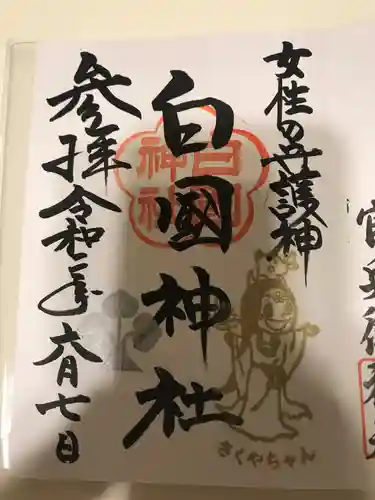 女性の守護神
白國神社
白國
神社
さくやちゃん
参拝令和二年六月七日